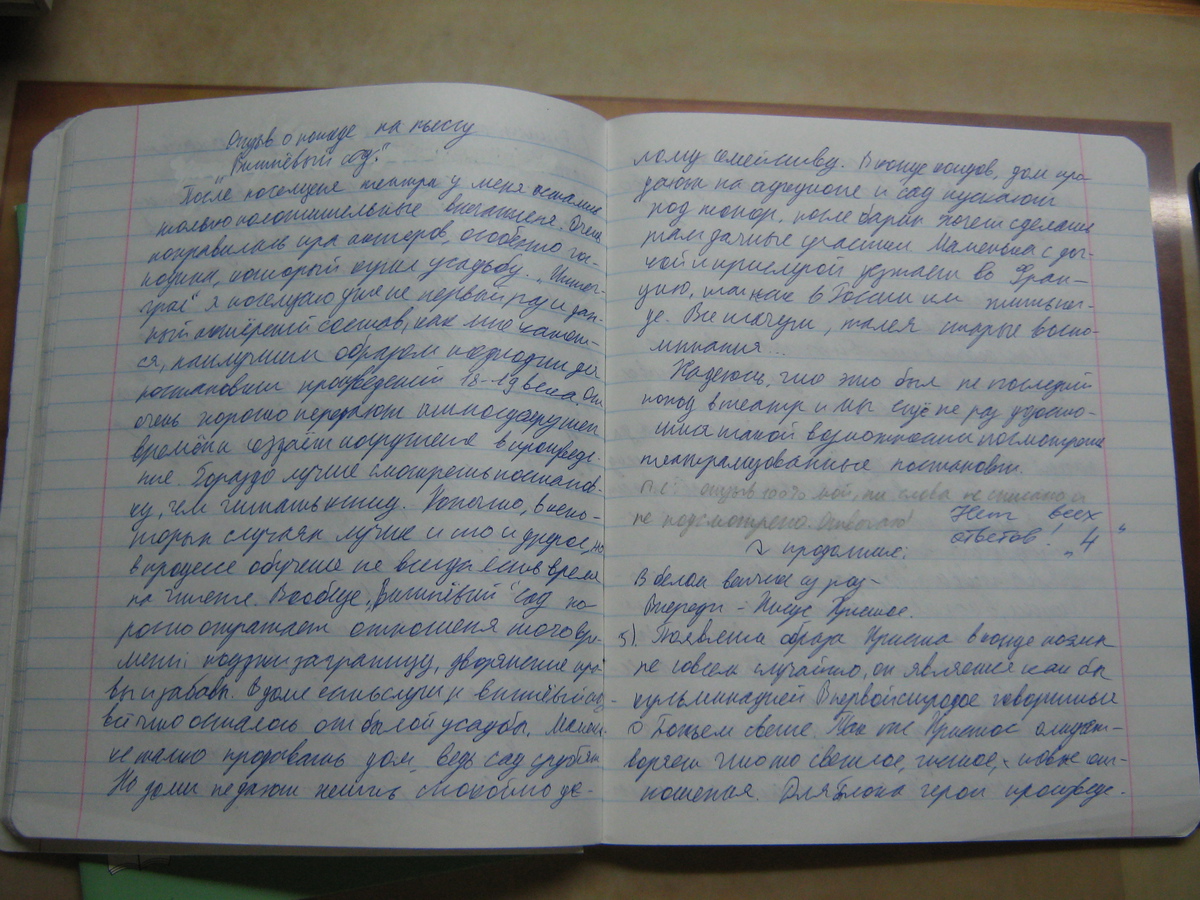 Отзыв о походе на пьесу
„Вишнёвый сад."
После посещения театра у меня остались
только положительные впечатления. Очень
понравилась игра актёров, особенно гос-
подина, который купил усадьбу.
я посещаю уже не первый раз и дан-
ный актёрский состав, как мне кажет-
ся, наилучшим образом подходит для
постановки произведений 18-19 века. Они
очень хорошо передают атмосферу тех
времён и создаёт погружение в произведе-
ние. Гораздо лучше смотреть постанов-
ку, чем читать книгу. Конечно, в неко-
торых случаях лучше и то и другое, но
в процессе обучения не всегда есть время
на чтение. Вообще, „Вишнёвый сад" хо-
рошо отражает отношения того вре-
мени: поездки заграницу, дворянские нра-
вы и забавы. В доме есть слуги, и вишнёвый сад,
всё что осталось от былой усадьбы.
не жалко продавать дом, ведь сад срубят.
Но долги не дают жить спокойно це-
лому семейству. В конце концов, дом про-
дают на аукционе и сад пускают
под топор, после барин хочет сделать
там дачные участки. Маменька с доч-
кой и прислугой уезжает во Фран-
цию, так как в России им жить не-
где. Все плачут, жалея старые воспо-
минания...
Надеюсь, что это был не последний
поход в театр и мы ещё не раз удосто-
имся такой возможности посмотреть
театрализованные постановки.
P.S. отзыв 100% мой, ни слова не списано и
не подсмотрено. Отвечаю!
Нет всех
ответов! „4"
продолжение:
В белом венчике из роз-
Впереди - Иисус Христос.
5). Появление образа Христа в конце поэмы
не совсем случайно, он является как бы
кульминацией. В первой строфе говориться
о Божьем свете. Так же Христос олицет-
воряет что то светлое, чистое, новые от-
ношения. Для Блока герои произведе-